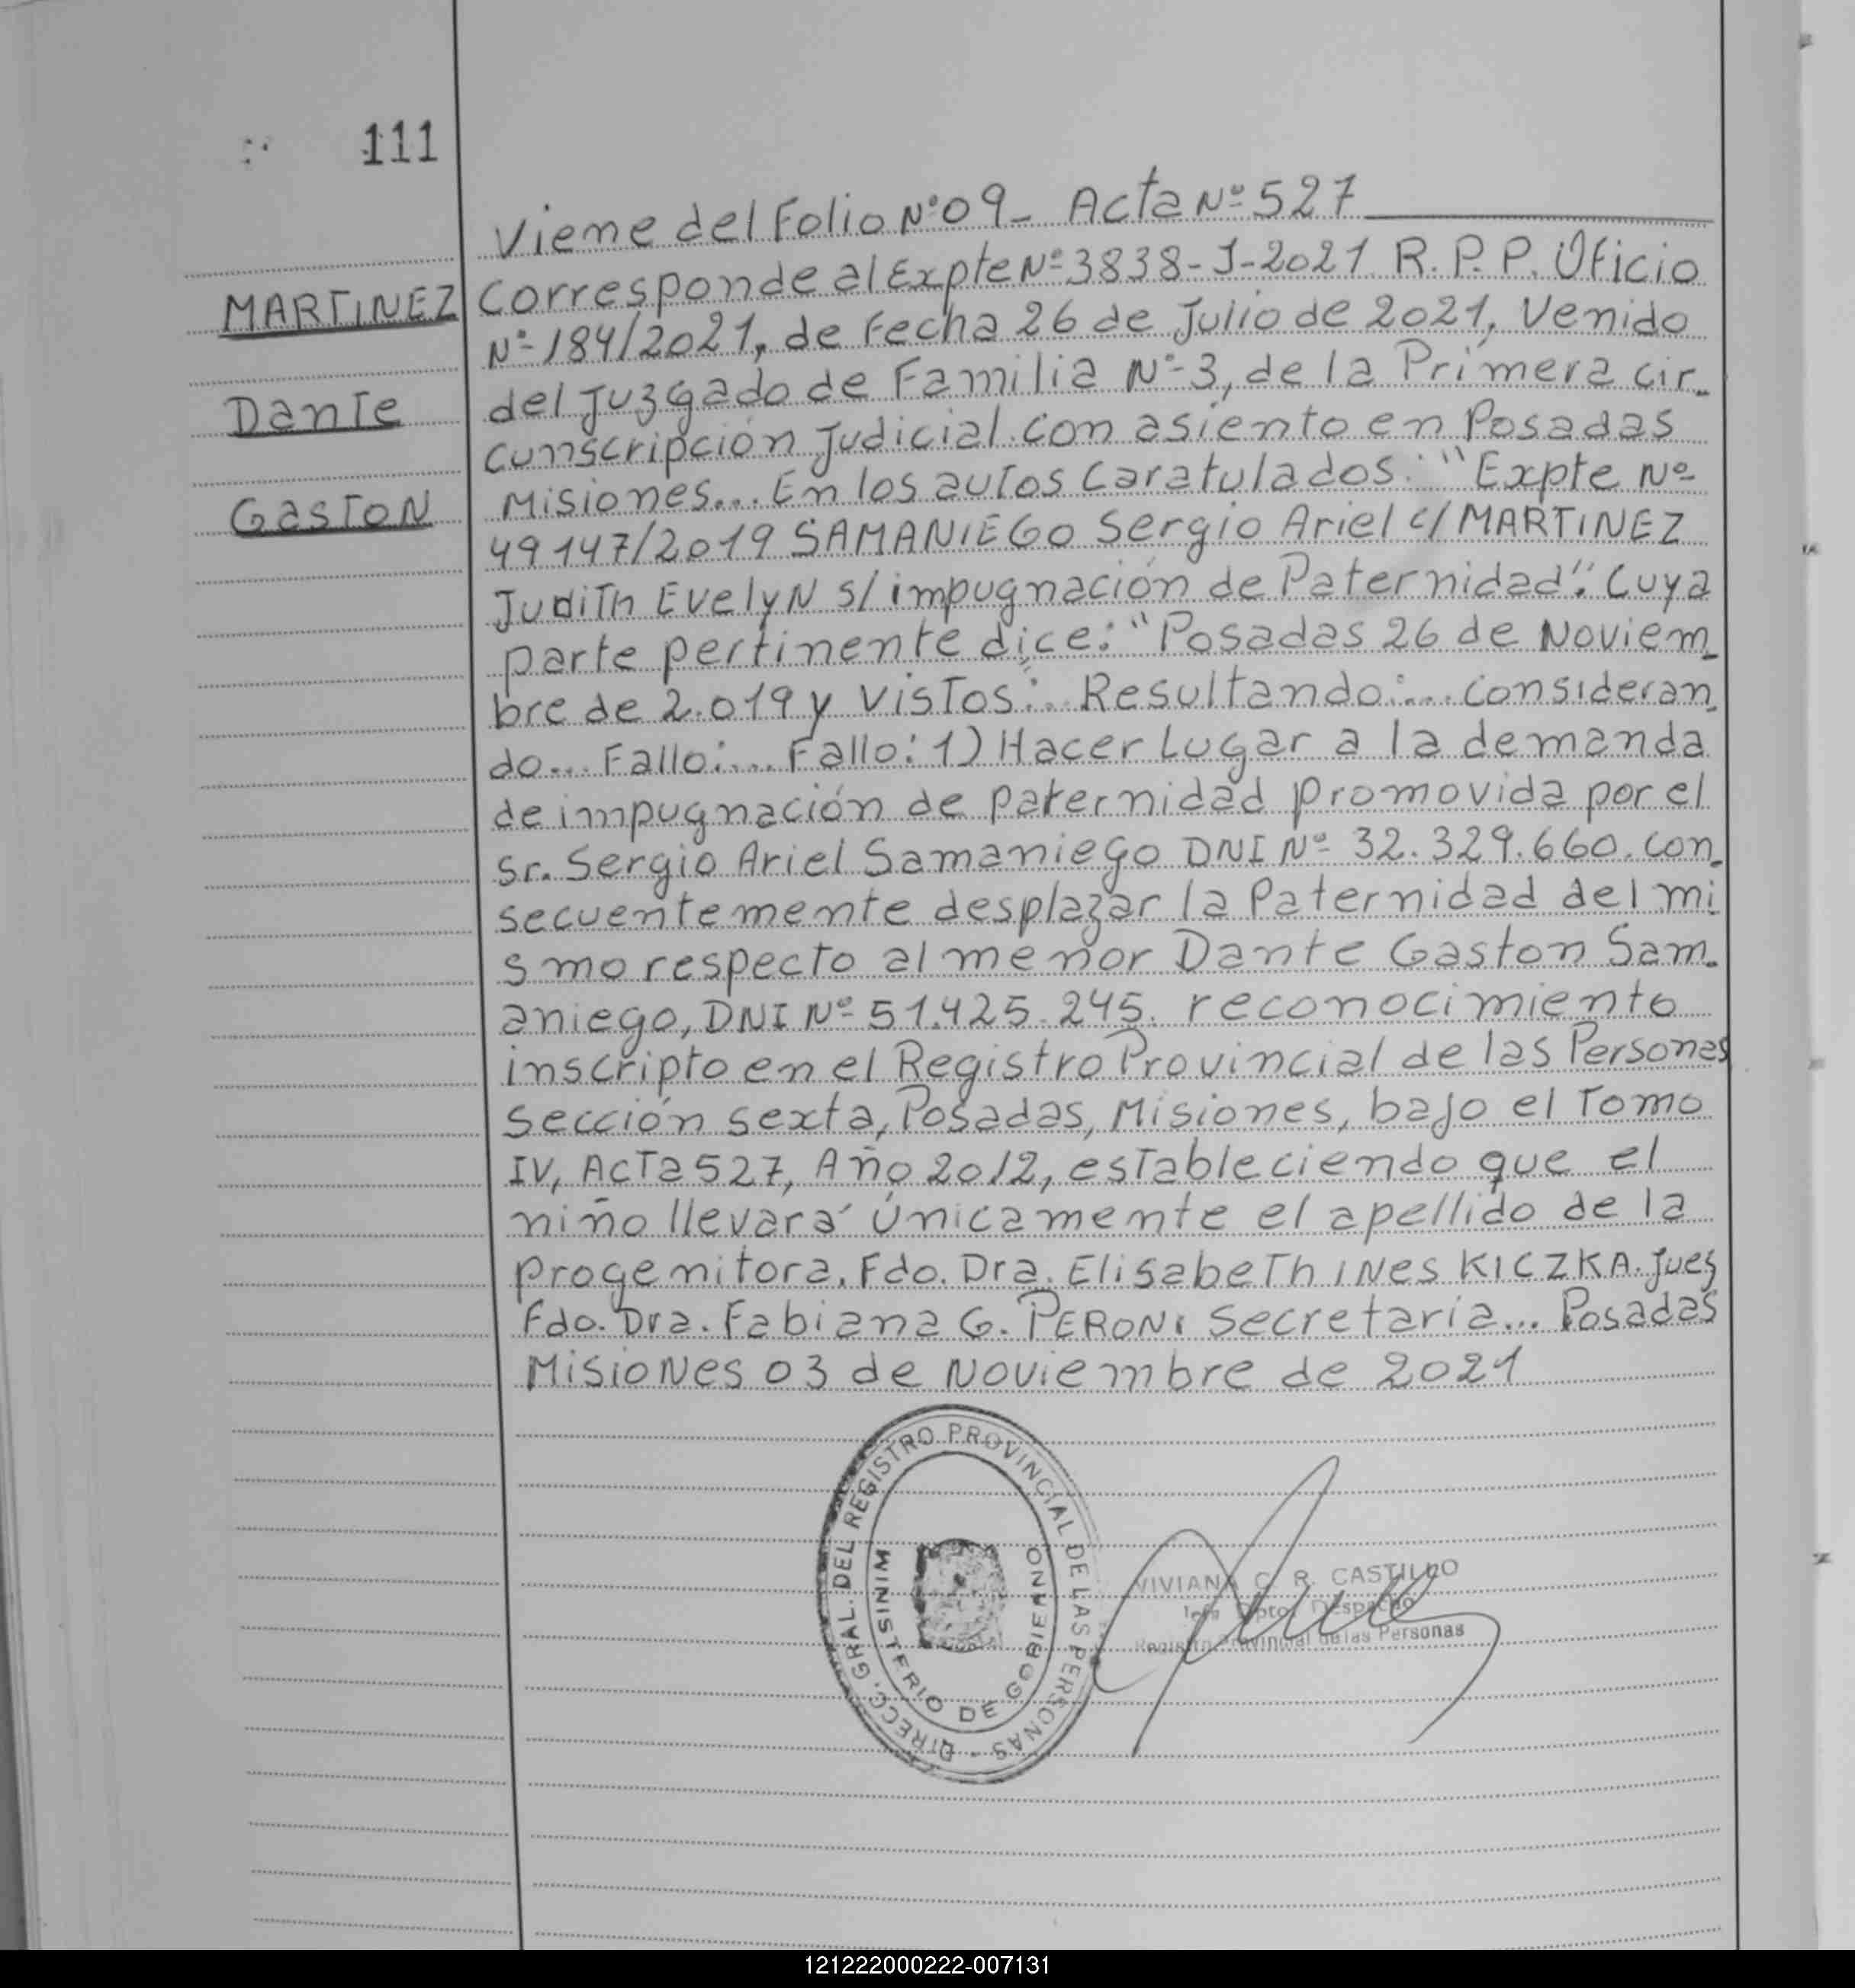 111
Viene del Folio Nº 09_ Acta Nº 527
MARTINEZ
Dante
Gaston
Corresponde al Expte Nº 3838-J-2021 R.P.P. Oficio
Nº 184/2021, de Fecha 26 de Julio de 2021, Venido
del Juzgado de Familia Nº 3, de la Primera cir_
cunscripción Judicial con asiento en Posadas
Misiones... En los autos Caratulados: "Expte Nº
49147/2019 SAMANIEGO Sergio Ariel c/ MARTINEZ
Judith Evelyn s/ impugnación de Paternidad". Cuya
parte pertinente dice: "Posadas 26 de Noviem_
bre de 2.019 y Vistos:.. Resultando:... Consideran_
do... Fallo:.... Fallo: 1) Hacer Lugar a la demanda
de impugnación de paternidad promovida por el
Sr. Sergio Ariel Samaniego DNI Nº 32.329.660. Con_
secuentemente desplazar la Paternidad del mi
smo respecto al menor Dante Gaston Sam_
aniego, DNI Nº 51.425.245. reconocimiento
inscripto en el Registro Provincial de las Personas
Sección Sexta, Posadas, Misiones, bajo el Tomo
IV, Acta 527, Año 2012, estableciendo que el
niño llevará únicamente el apellido de la
progenitora. Fdo. Dra. Elisabeth Ines KICZKA. Juez
Fdo. Dra. Fabiana G. PERONI Secretaria... Posadas
Misiones 03 de Noviembre de 2021
DIRECC. GRAL. DEL REGISTRO PROVINCIAL DE LAS PERSONAS -
MINISTERIO DE GOBIERNO
VIVIANA C. R. CASTILLO
Jefa Dpto. Despacho
Registro Provincial de las Personas
121222000222-007131